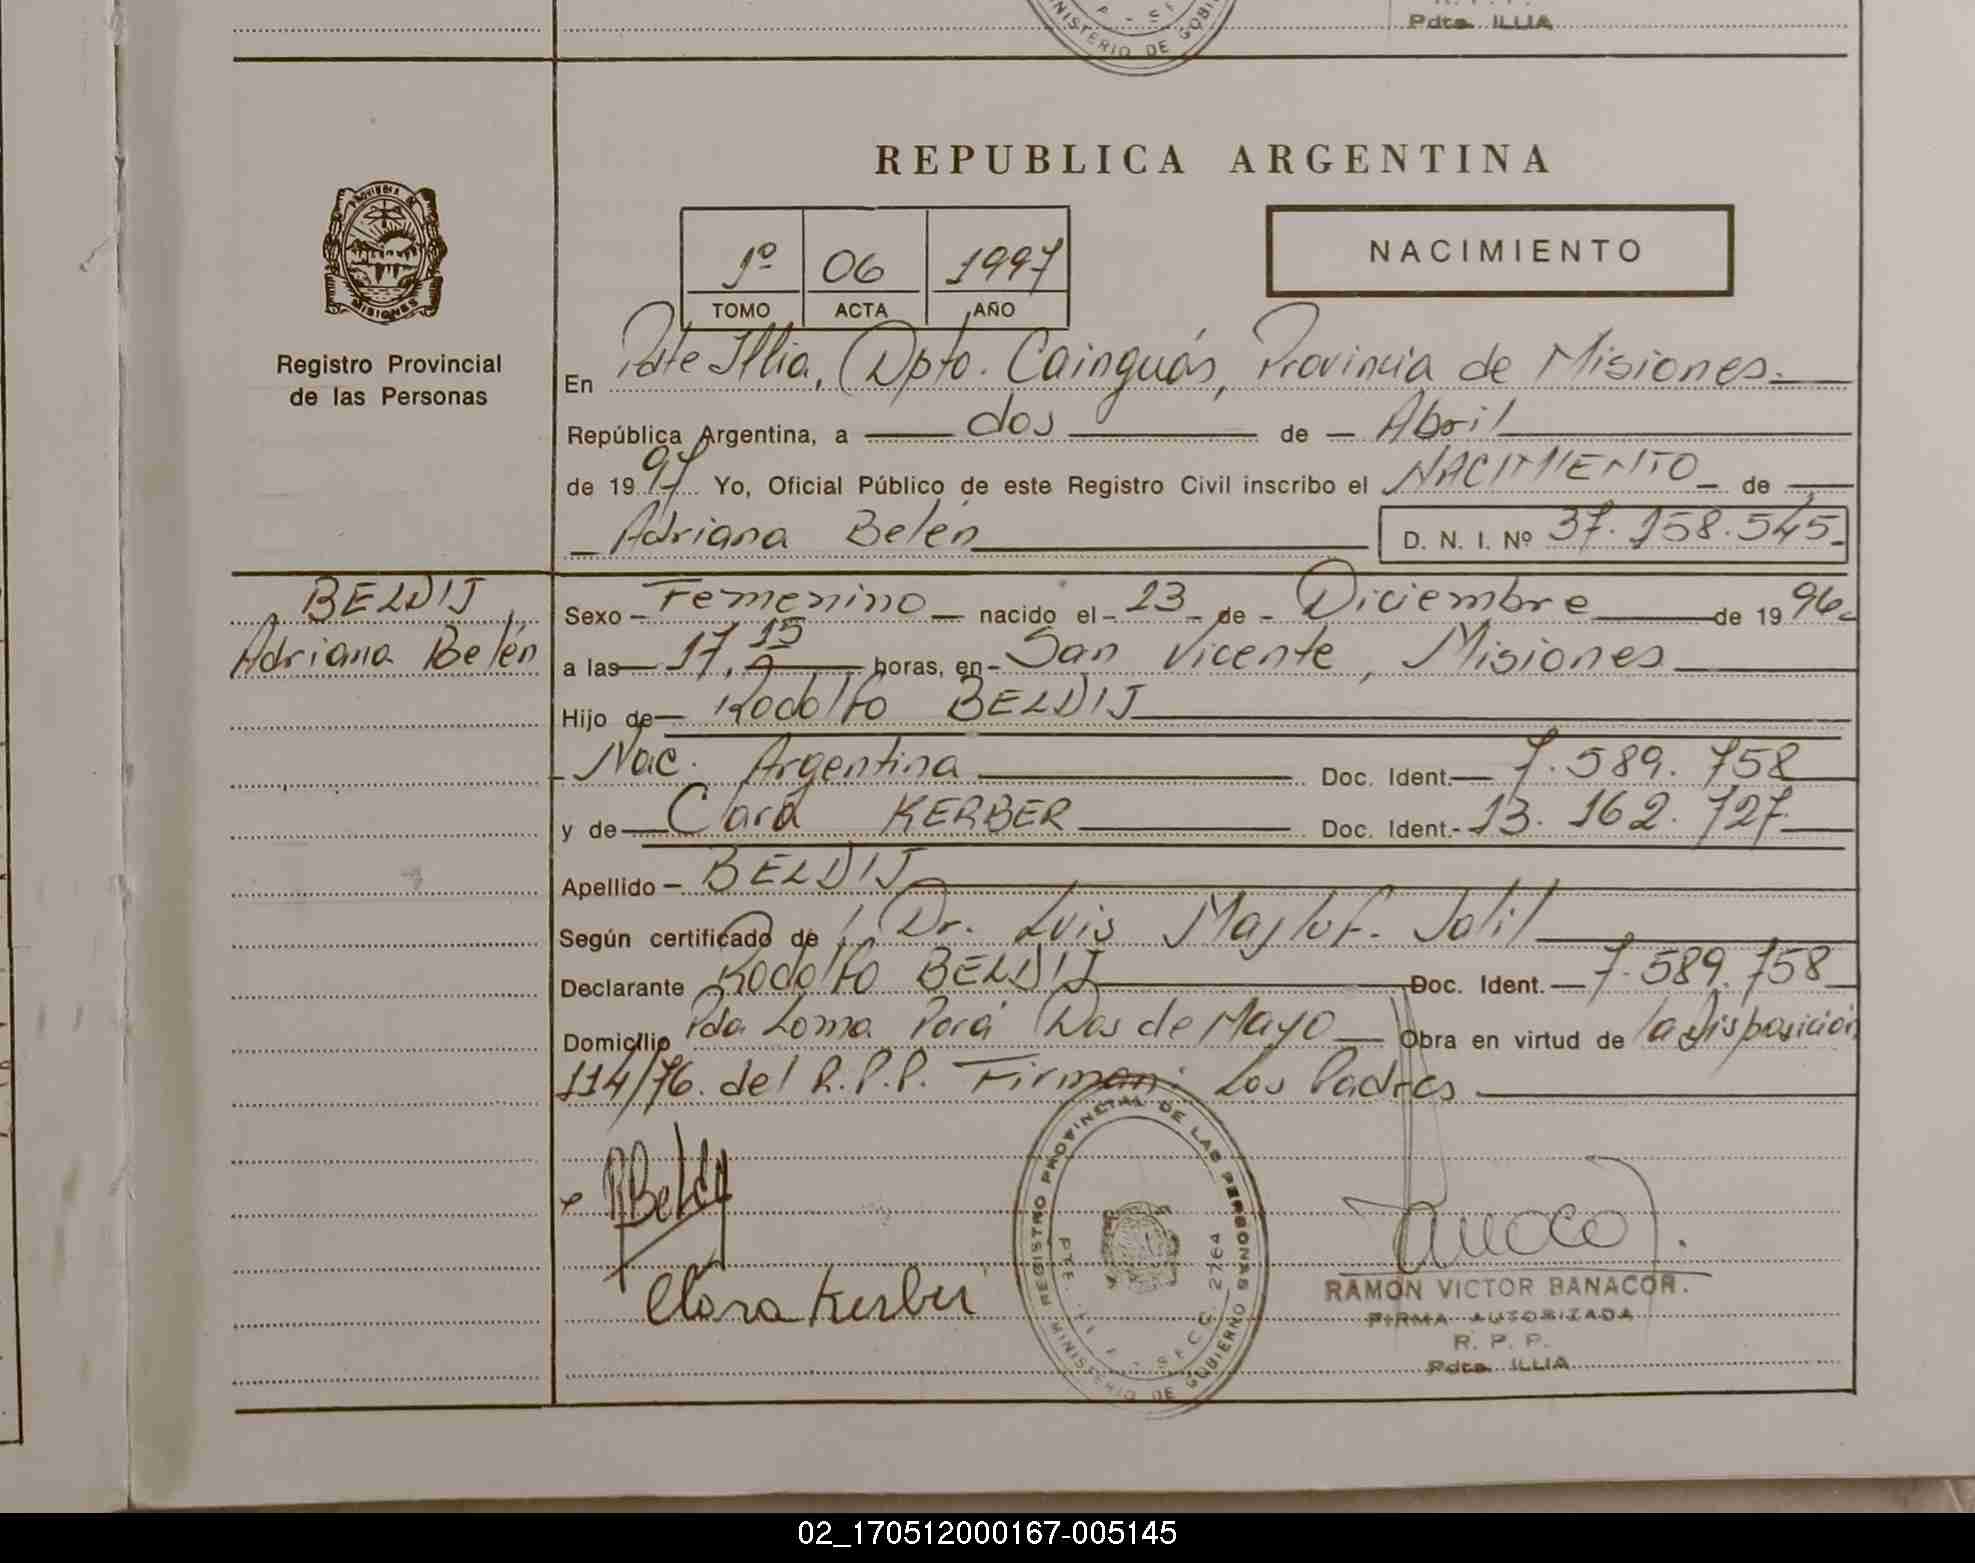 Pdte. ILLIA
MINISTERIO DE GOBI
REPUBLICA ARGENTINA
PROVINCIA DE
MISIONES
1º 06 1997
TOMO ACTA AÑO
NACIMIENTO
Registro Provincial
de las Personas
En Pdte Illia, Dpto. Cainguás, Provincia de Misiones.
República Argentina, a dos de Abril
de 1997 Yo, Oficial Público de este Registro Civil inscribo el NACIMIENTO de
Adriana Belén D. N. I. Nº 37.158.545
BELDIJ
Adriana Belén
Sexo Femenino nacido el 23 de Diciembre de 1996
a las 17,15 horas, en San Vicente, Misiones
Hijo de Rodolfo BELDIJ
Nac. Argentina Doc. Ident. 7.589.758
y de Clara KERBER Doc. Ident. 13.162.727
Apellido BELDIJ
Según certificado de Dr. Luis Majluf Jalil
Declarante Rodolfo BELDIJ Doc. Ident. 7.589.758
Domicilio Pda Loma Porá Dos de Mayo Obra en virtud de la disposición
114/76. del R.P.P. Firman: Los Padres
REGISTRO PROVINCIAL DE LAS PERSONAS
MINISTERIO DE GOBIERNO
SECC. 2764
Clara Kerber
RAMON VICTOR BANACOR.
FIRMA AUTORIZADA
R. P. P.
Pdte. ILLIA
02_170512000167-005145